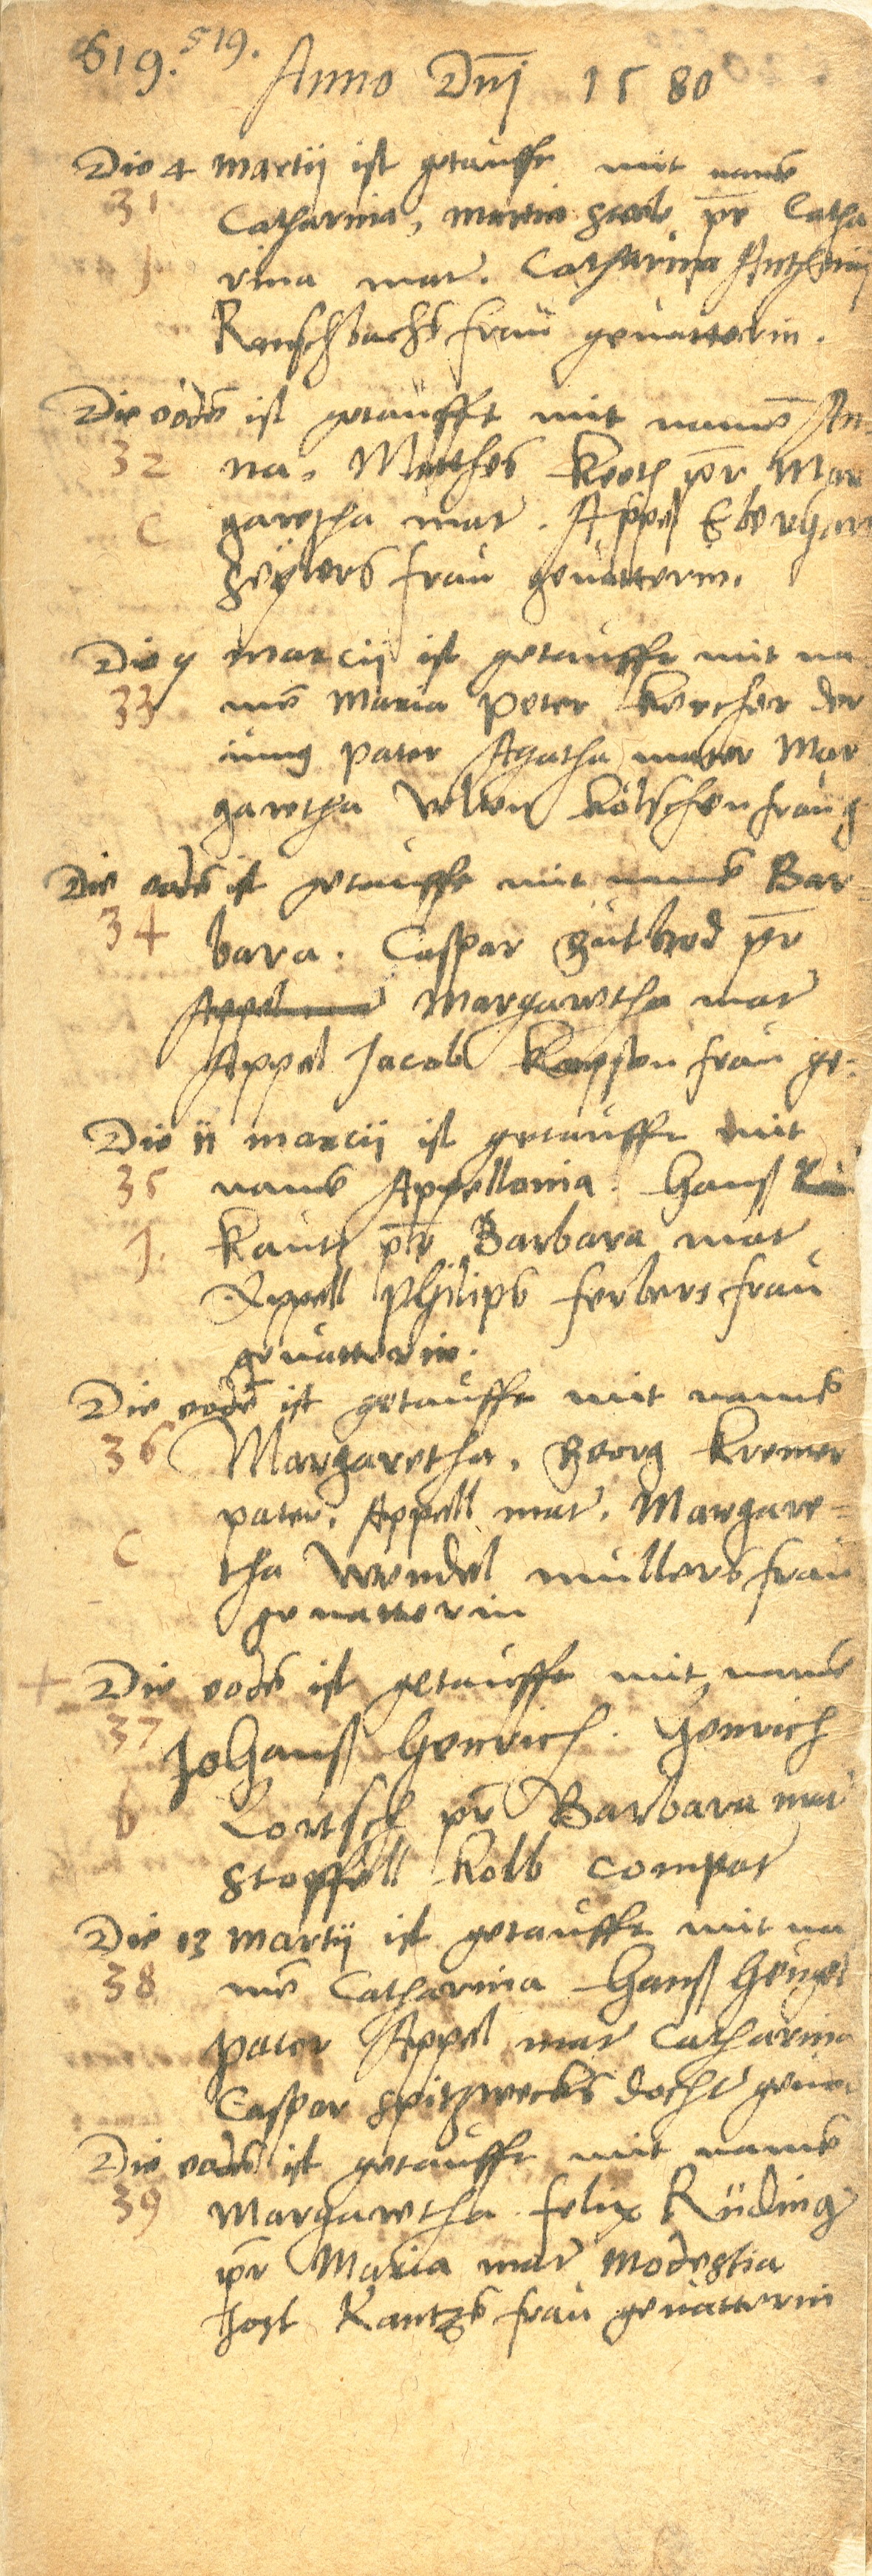 519. 519.
Anno Dnj 1580
Die 4 Martij ist getaufft mit name
31 Catharina, Martin pr Catha
rina mat. Catharina Anthonij
Renschbachs frau geuatterin.
Die eode ist getaufft mit name An-
32 na. Matthes Koch pr Mar
C garetha mat. Appel Eberhart
frau geuatterin.
Die 9 marcij ist getaufft mit na
33 me Maria Peter Kercher der
iung pater Agatha mater Mar
garetha Velten Kölschen frau g
Die eode ist getaufft mit name Bar-
34 bara. Caspar Gutbrod pr
Appel Margaretha mat
Appel Jacob frau ge-
Die 11 marcij ist getaufft mit
35 name Appellonia. Hanß
J. Kautz pr Barbara mat
Appell Philips ferbers frau
geuatterin.
Die eode ist getaufft mit name
36 Margaretha. Georg Kremer
pater. Appell mat. Margare-
C tha Wendel mullers frau
geuatterin
+ Die eode ist getaufft mit name
37 Johanß Henrich. Henrich
b Lortsch pr Barbara mat
Stopffell Kolb compat
Die 13 Martij ist getaufft mit na
38 me Catharina Hanß Heugel
pater Appel mat Catharina
Caspar Spitzwecks docht geua
Die eode ist getaufft mit name
39 Margaretha felix Rüding
pr Maria mat Modestia
Jost Kautzs frau geuatterin